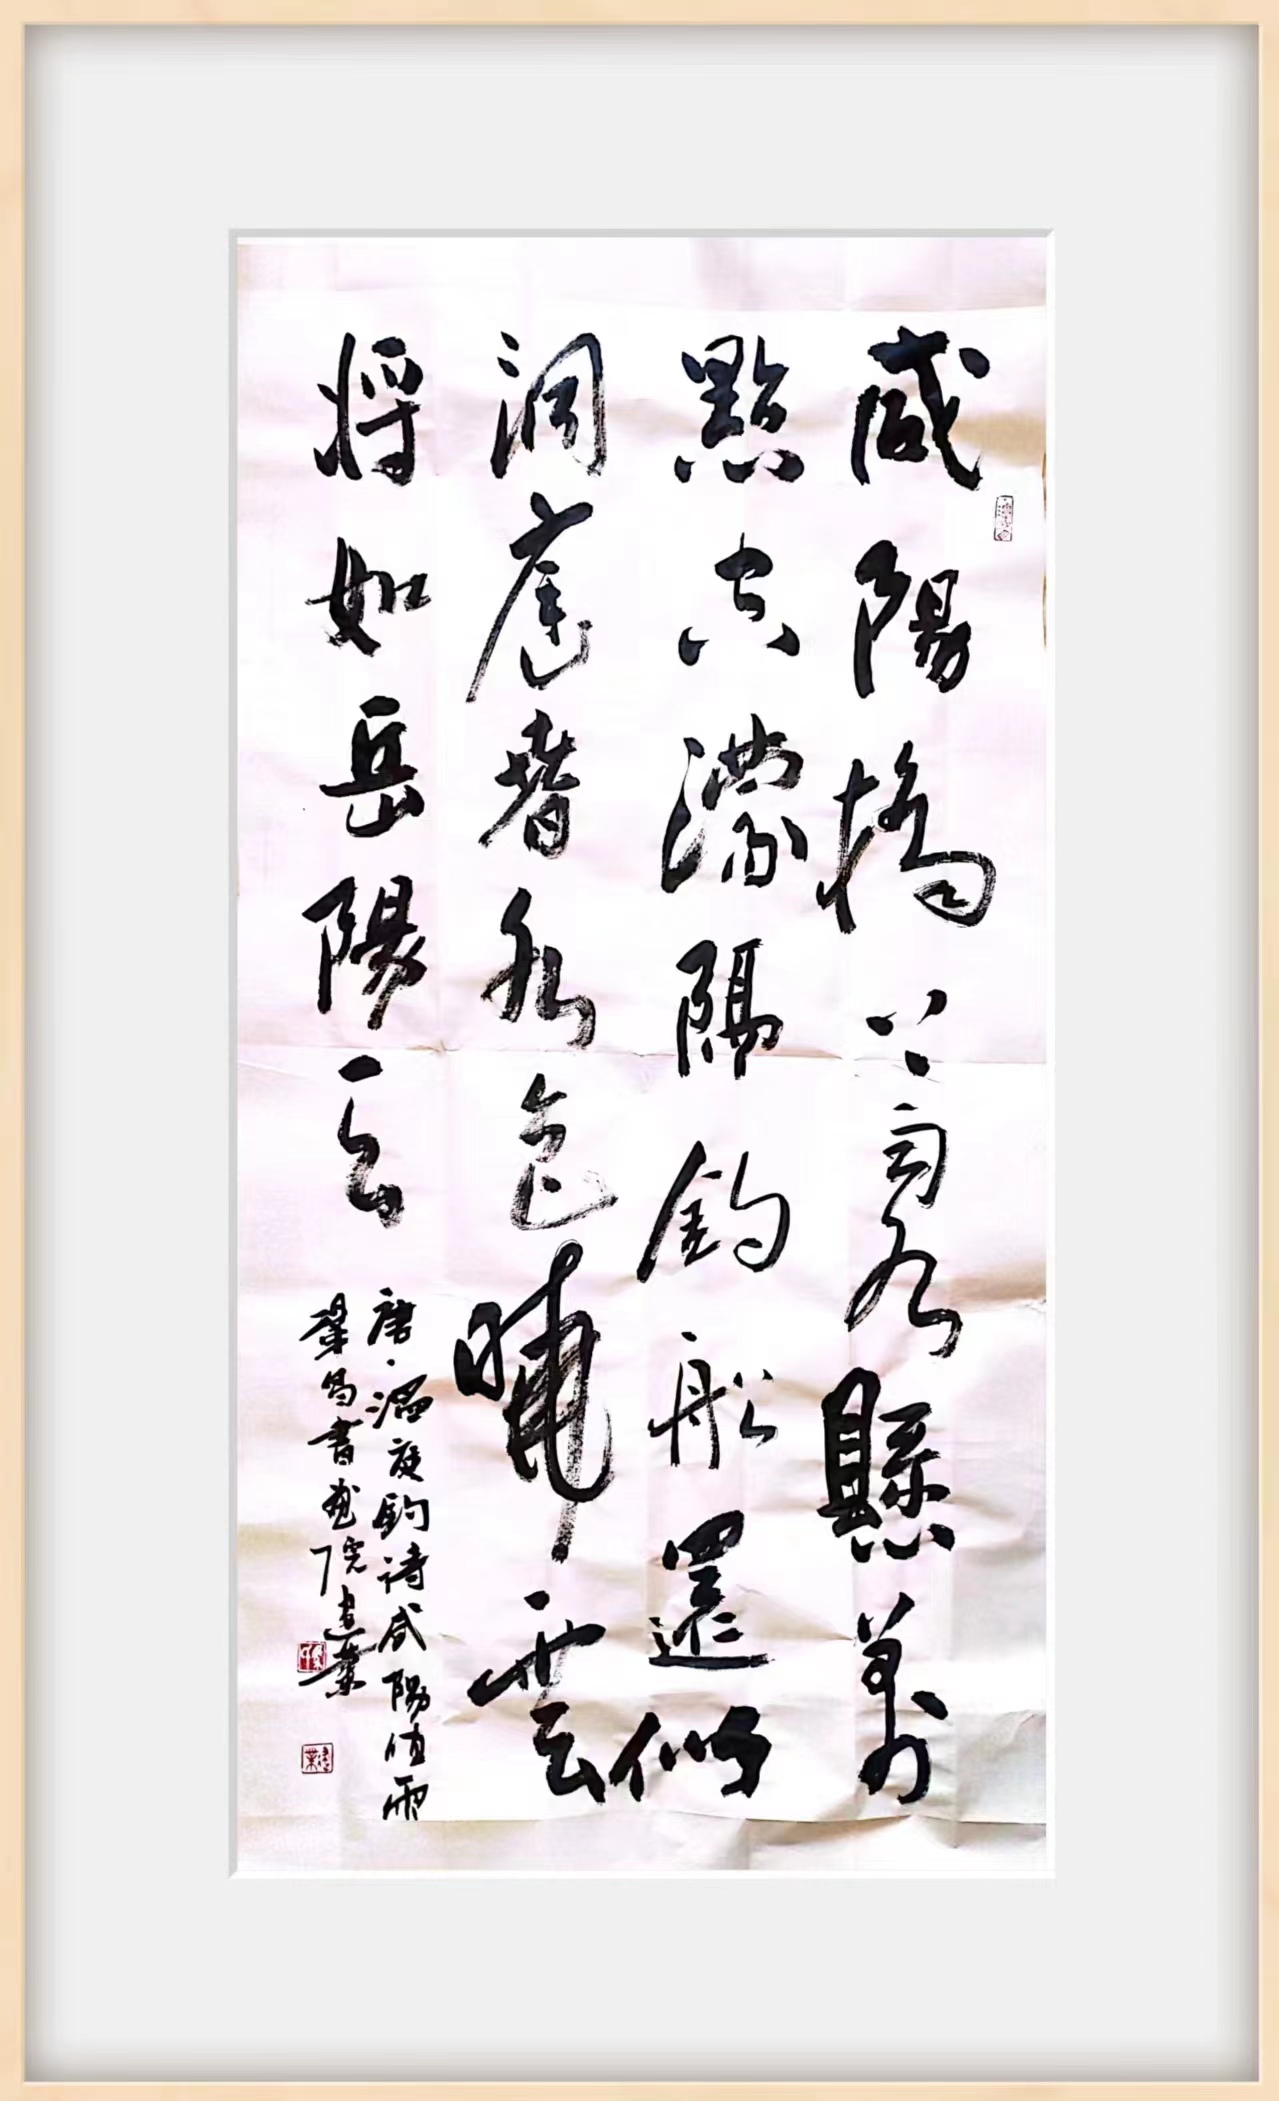 咸陽橋上雨如懸萬
點空濛隔釣船還似
洞庭春水色曉雲
將如岳陽天
唐·溫庭鈞詩咸陽值雨
鞏昌書畫院建業